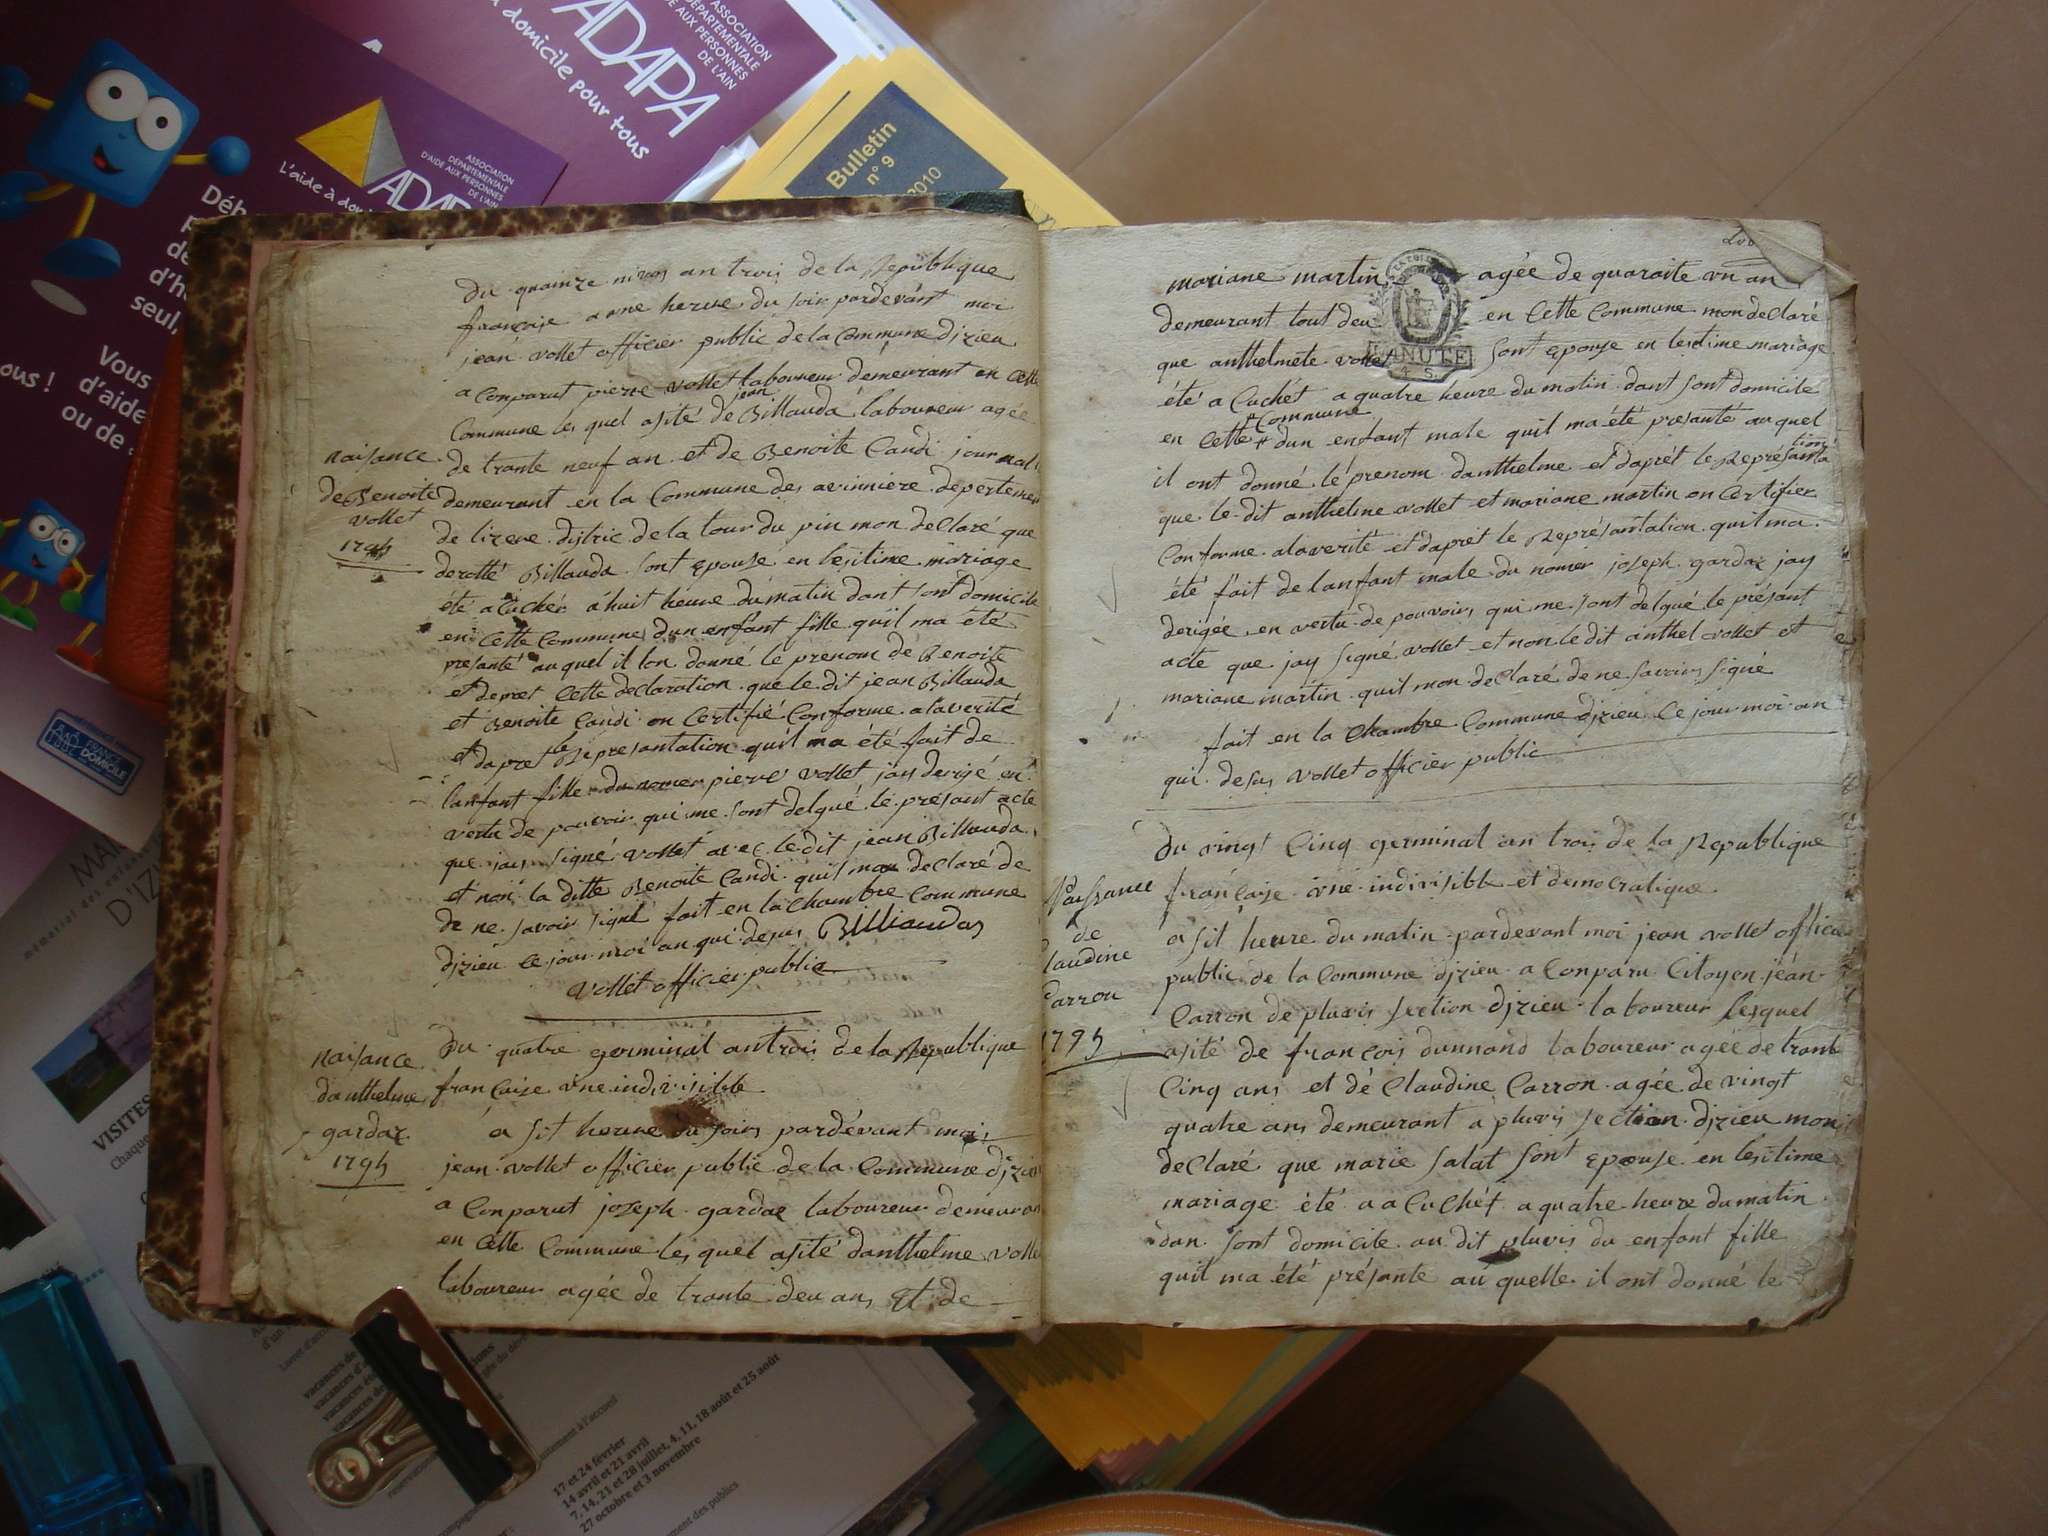 ASSOCIATION
DÉPARTEMENTALE
D'AIDE AUX PERSONNES
DE L'AIN
ADAPA
à domicile pour tous
Bulletin
n° 9
2010
ASSOCIATION
DÉPARTEMENTALE
D'AIDE AUX PERSONNES
DE L'AIN
L'aide à dom
seul,
Vous
d'aide
ou de
ous !
FRANCE
DOMICILE
D'IZI
VISITES
Chaque
du quainze nivos an trois de la Republique
française a une herue du soir pardevant moi
jean vollet officier public de la Commune dizieu
a Conparut pierre vollet laboureur démeurant en Cette
Commune les quel asité de jean Billauda laboureur agée
naisance
de Benoite
vollet
1795
de trante neuf an et de Benoite Candi journal
demeurant en la Commune des avinniere departemen
de lizere distric de la tour du pin mon declaré que
derotté Billauda sont epouse en lesitime mariage
été acuchér a huit heure du matin dant sont domicile
en Cette Commune dun enfant fille quil ma été
presanté au quel il lon donné le prenom de Benoite
et depret Cette declaration que le dit jean Billauda
et Benoite Candi on Certifié Conforme alaverité
et dapret le Represantation quil ma été fait de
lanfant fille du nomer pierre vollet jay derigé en
vertu de pouvoir qui me sont delqué le présant acte
que jay signé vollet avec le dit jean Billauda
et non la ditte Benoite Candi quil mon declaré de
de ne savoir signé fait en la Chambre Commune
dizieu Ce jour moi an qui desus Billiaudas
vollet officier public
naisance
danthelme
gardaz
1795
Du quatre germinal an trois de la Republique
française une indivisible
a sit herue du soir pardévant moi
jean vollet officier public de la Commune dizieu
a Conparut joseph gardaz laboureur demeuran
en Cette Commune les quel asité danthelme volle
laboureur agée de trante deu ans et de
mariane martin agée de quaraite un an
demeurant tout deu en Cette Commune mon declaré
que anthelmete vollet sont epouse en lesitime mariage
LA NUTE
4 S.
été a Cuchét a quatre heure du matin dant sont domicile
en Cette Commune dun enfant male quil ma été presanté au quel
il ont donné le prenom danthelme et daprét le Représantation
que le dit anthelme vollet et mariane martin on Certifier
Conforme alaverité et daprét le Représantation quil ma
été fait de lanfant male du nomer joseph gardaz jay
derigée en vertu de pouvoirs qui me sont delqué le présant
acte que jay signé vollet et non le dit anthel vollet et
mariane martin quil mon declaré de ne savoirs signé
fait en la Chambre Commune dizieu Ce jour moi an
qui desus vollet officier public
Naissance
de
Claudine
Carron
1795
Du vingt Cinq germinal an trois de la Republique
française une indivisible et democratique
a sit heure du matin pardevant moi jean vollet officie
public de la Commune dizieu a Conparu Citoyen jean
Carron de pluvis section dizieu laboureur lesquel
asité de françois dunnand laboureur agée de trante
Cinq ans et dé Claudine Carron agée de vingt
quatre ans demeurant a pluvis section dizieu mon
declaré que marie salat sont epouse en lesitime
mariage été a a Cuchét a quatre heure du matin
dan sont domicile au dit pluvis du enfant fille
quil ma été présante au quelle il ont donné le
17 et 24 février
14 avril et 21 avril
7, 14, 21 et 28 juillet, 4, 11, 18 août et 25 août
27 octobre et 3 novembre